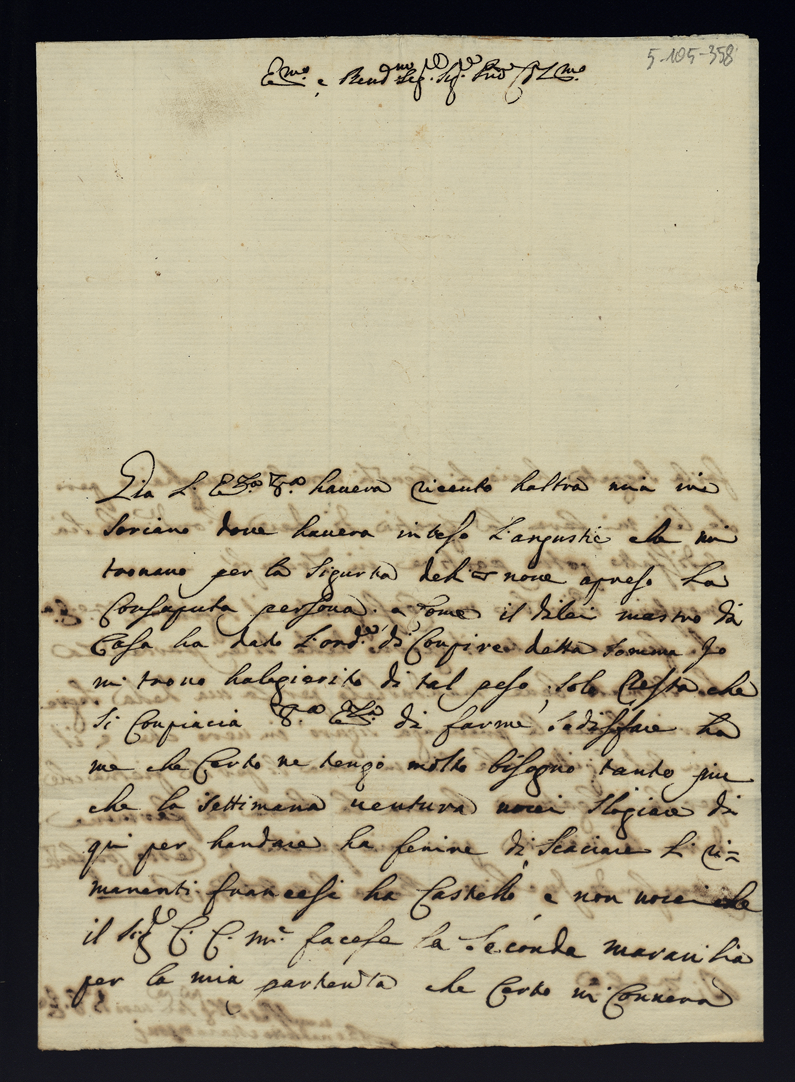 5-105-358
E.mo e Rend.mo Sig.e Sig.e Pad.e Col.mo
Gia L. E.za V.a hauera riceuto haltra mia in
Soriano doue hauera inteso L'angustie che mi
trouauo per la Sigurta del noue apreso La
Consaputa persona. e Come il dilei mastro di
Casa ha dato L'ord.e di Conpire detta somma Io
mi trouo halegierito di tal peso, solo Resta che
si Conpiacia V.a E.za di farme sodisffare ha
me che Certo ne tengo molto bisogno tanto piu
che la settimana uentura uorei Slogiare di
qui per handare ha fenire di Scaciare Li ri=
manenti francesi ha Castello e non uorei che
il Sig.e C. C. mi facese la Seconda marauilia
per la mia partenta che Certo mi Conuera